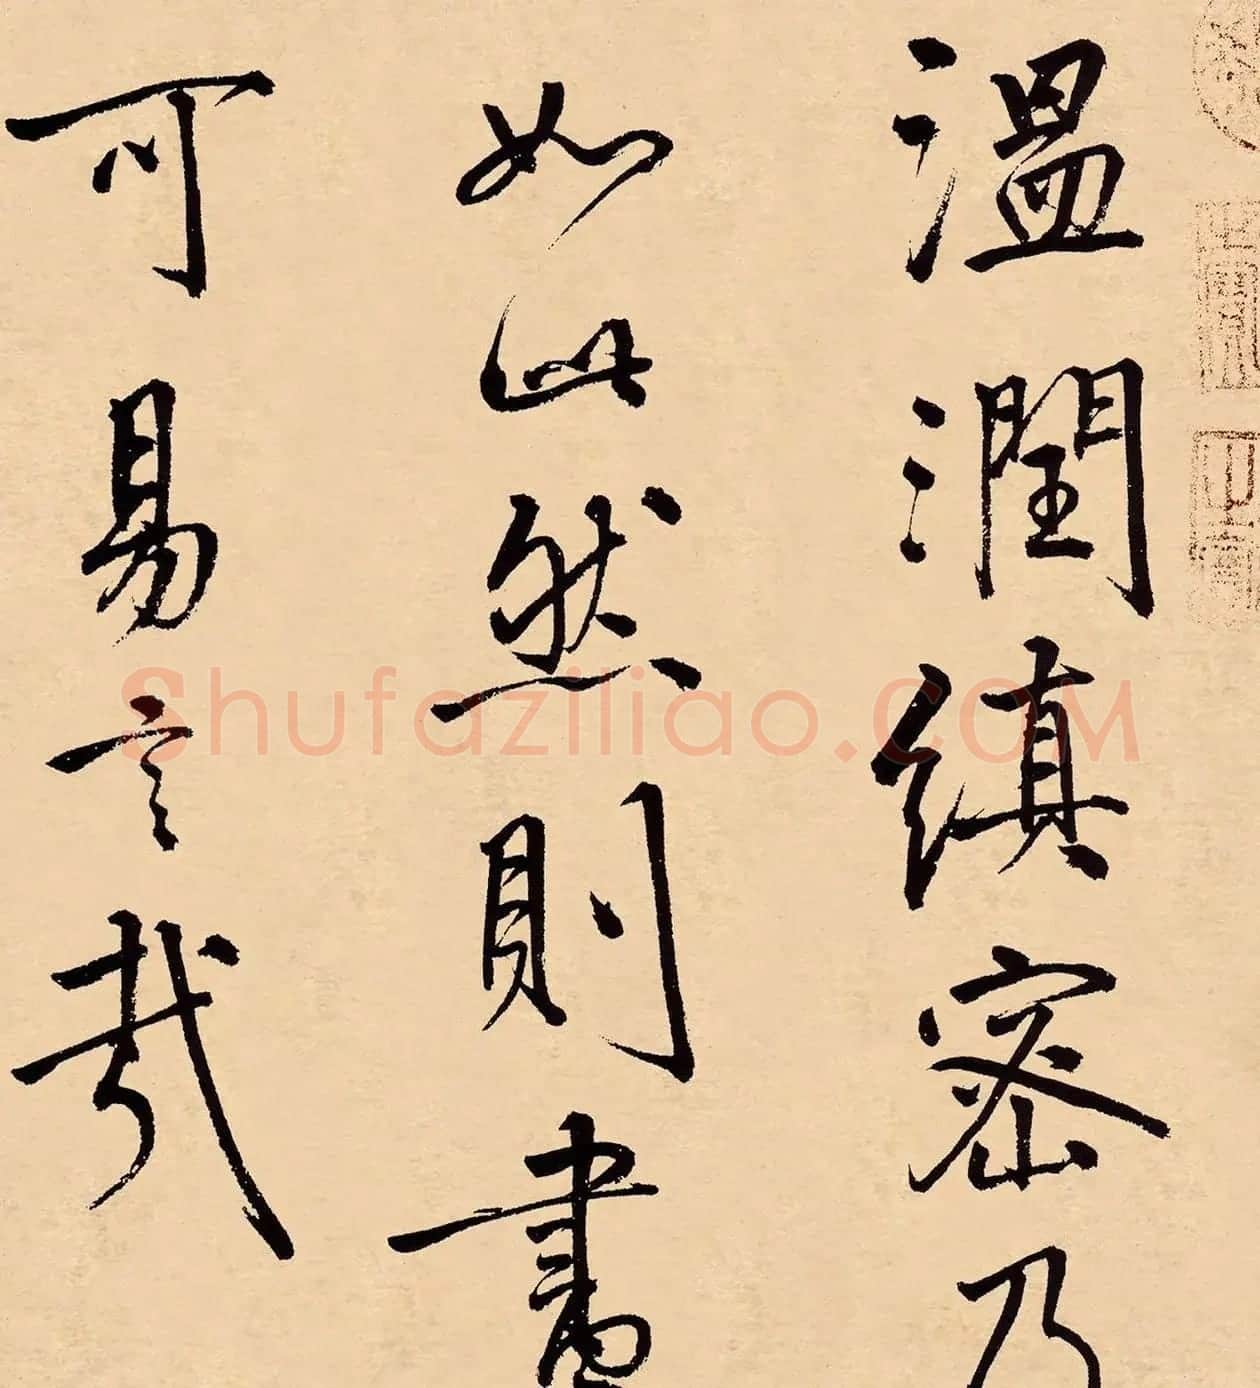 温潤縝密乃
如此然則畫
可易言哉
Shufaziliao.COM